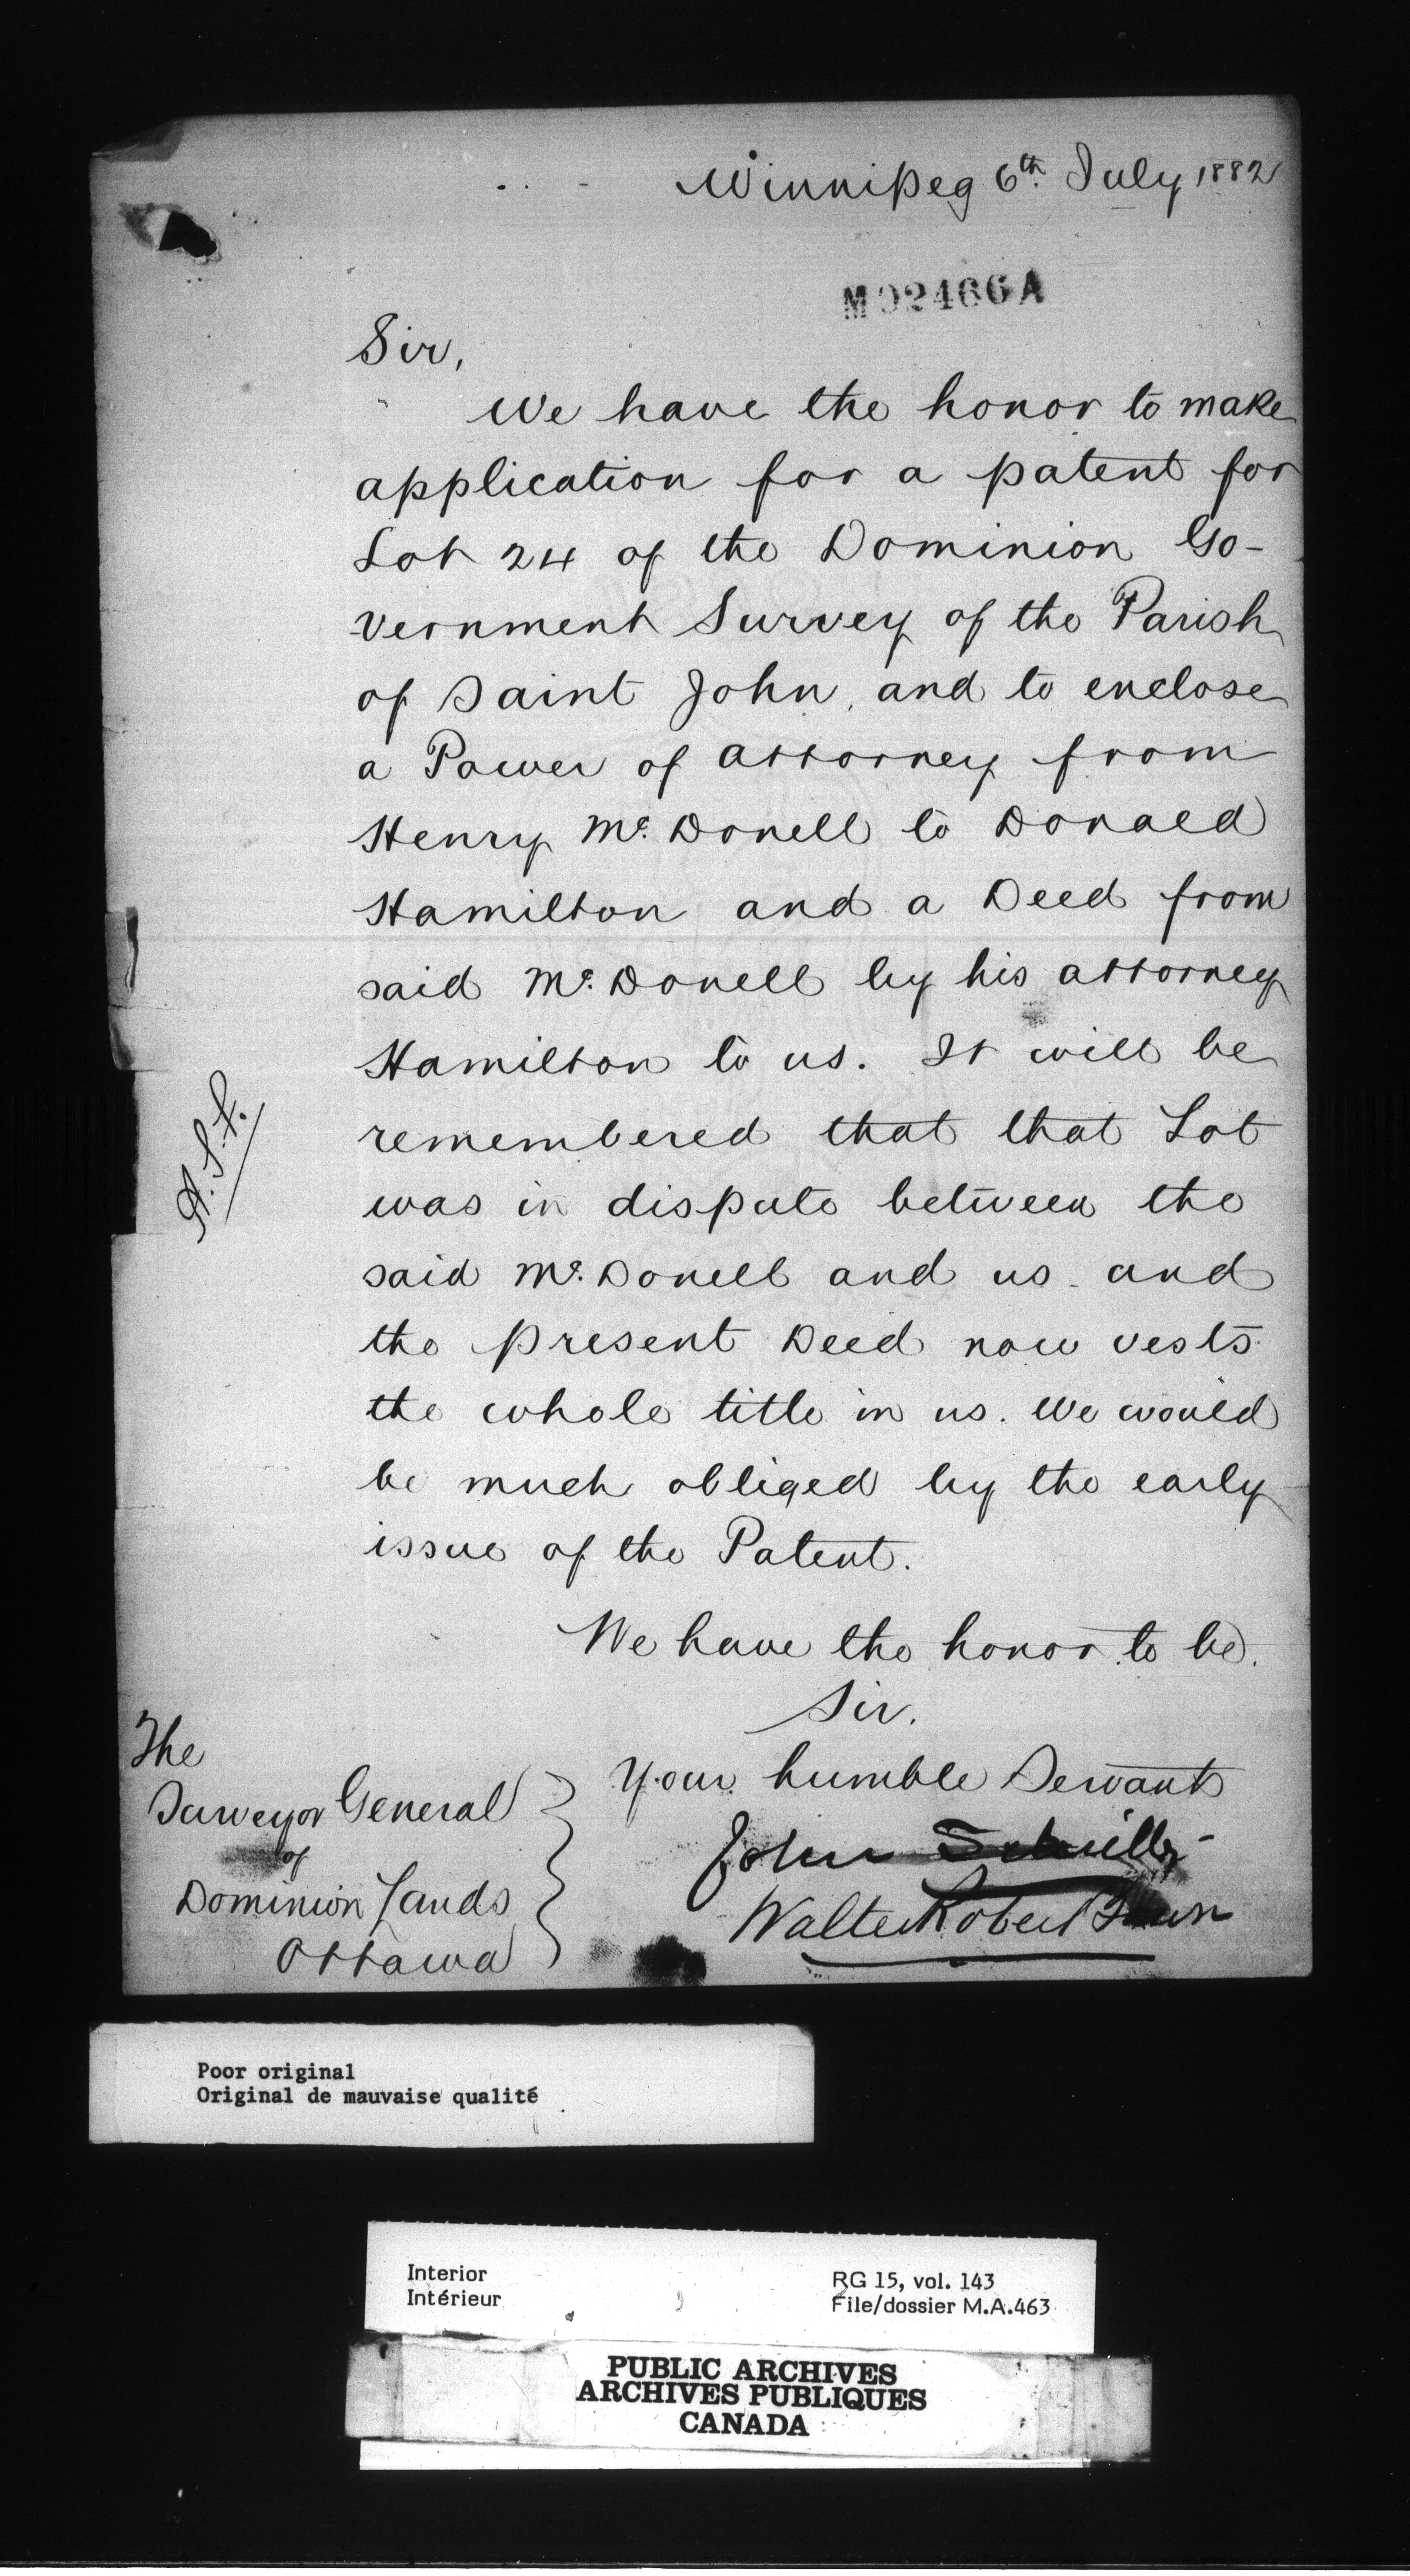 Winnipeg 6th. July 1882
M02466A
Sir,
We have the honor to make
application for a patent for
Lot 24 of the Dominion Go-
vernment Survey of the Parish
of Saint John, and to enclose
a Power of attorney from
Henry Mc. Donell to Donald
Hamilton and a Deed from
said Mc. Donell by his attorney
Hamilton to us. It will be
remembered that that Lot
was in dispute between the
said Mc. Donell and us and
the present Deed now vests
the whole title in us. We would
be much obliged by the early
issue of the Patent.
We have the honor to be.
Sir.
Your humble Servants
John
Walter Robert Bown
The
Surveyor General
of
Dominion Lands
Ottawa
Poor original
Original de mauvaise qualité
Interior
Intérieur
RG 15, vol. 143
File/dossier M.A.463
PUBLIC ARCHIVES
ARCHIVES PUBLIQUES
CANADA